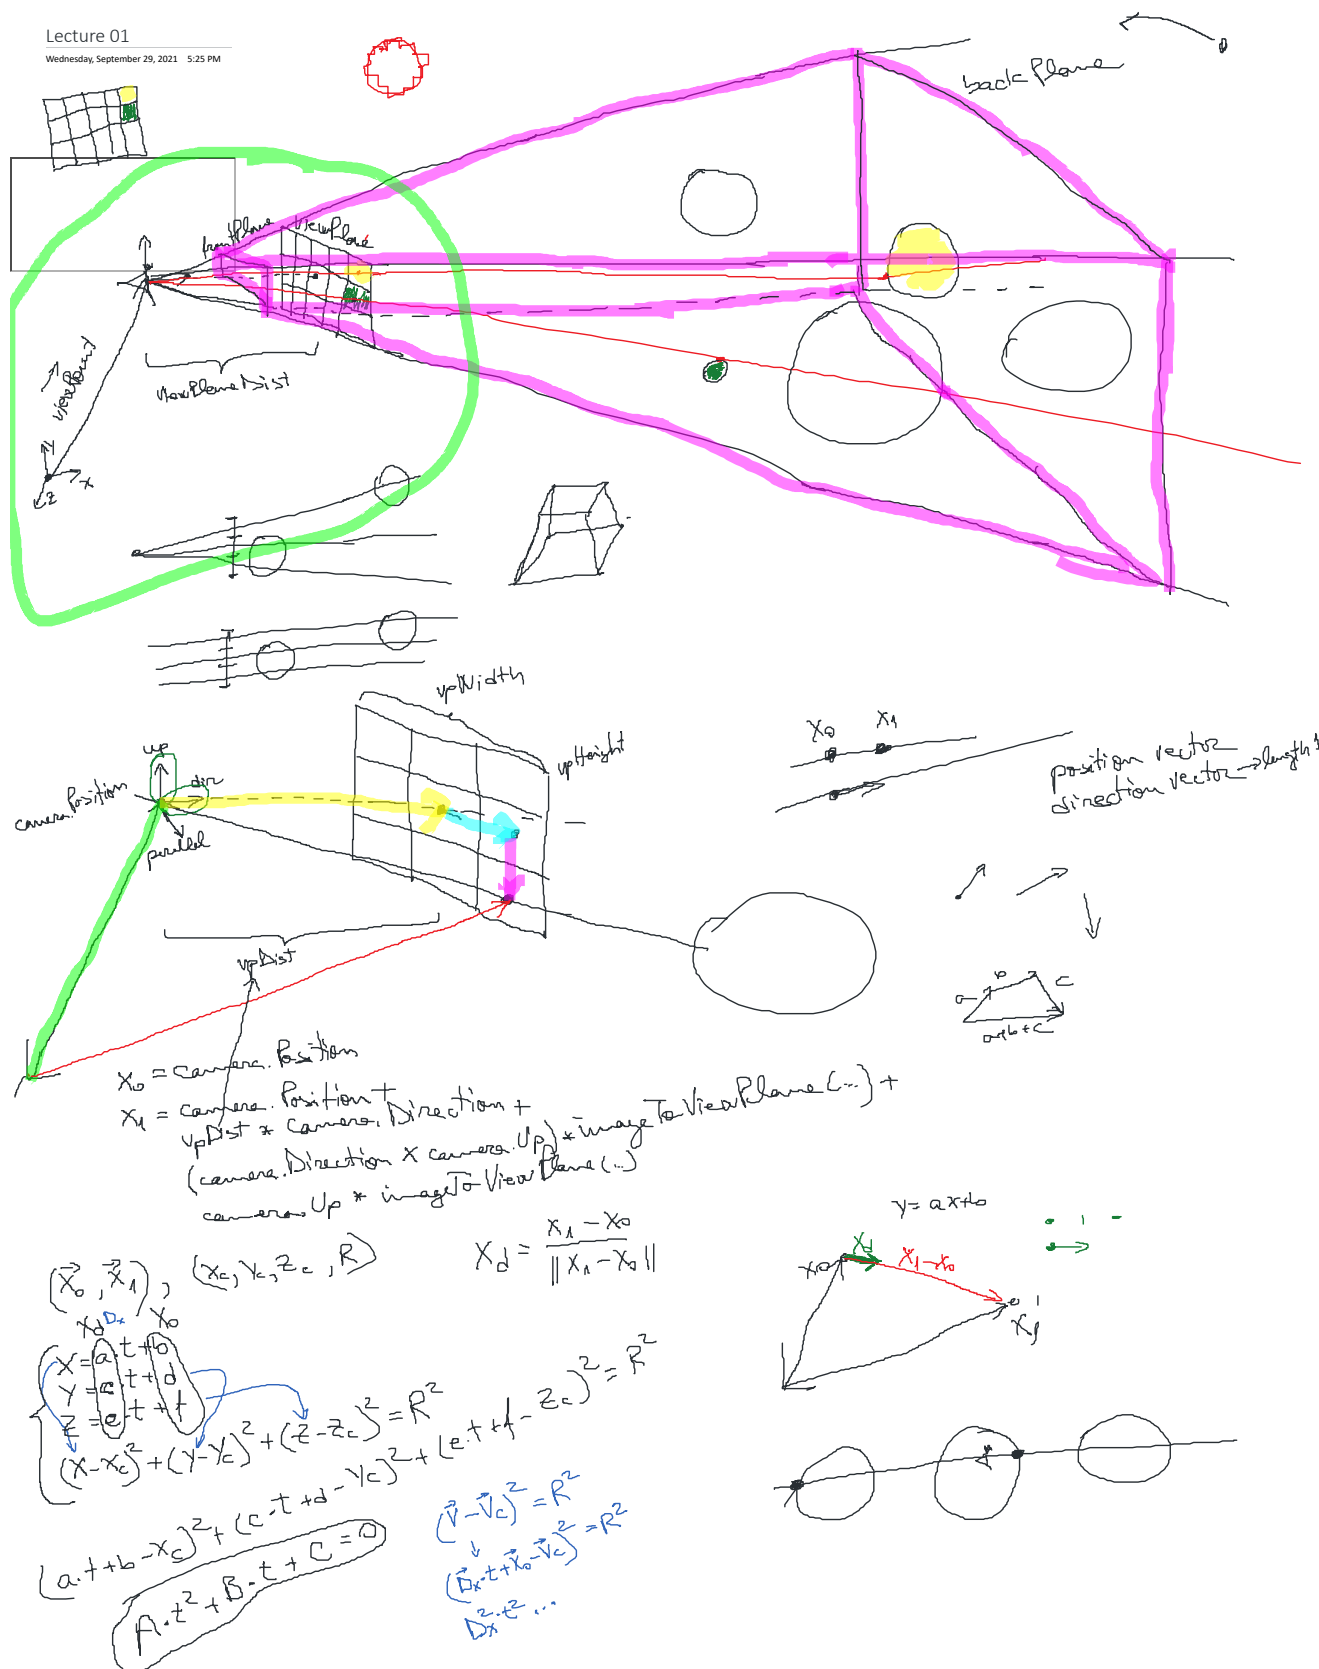 Lecture 01
Wednesday, September 29, 2021 5:25 PM
back Plane
frontPlane
viewPlane
viewPoint
viewPlaneDist
Y
X
Z
vpWidth
vpHeight
up
dir
camera.Position
parallel
vpDist
X₀ X₁
position vector
direction vector → length 1
a b c
a+b+c
X₀ = camera.Position
X₁ = camera.Position +
vpDist * camera.Direction +
(camera.Direction X camera.Up) * imageToViewPlane(...) +
camera.Up * imageToViewPlane(...)
y = ax+b
(X₀, X₁), (Xc, Yc, Zc, R)
Xd = X₁ - X₀ / ||X₁ - X₀||
X₀ Xd X₁-X₀
X₁
Xd Dx X₀
X = a.t + b
Y = c.t + d
Z = e.t + f
(X-Xc)² + (Y-Yc)² + (Z-Zc)² = R²
(a.t+b-Xc)² + (c.t+d-Yc)² + (e.t+f-Zc)² = R²
A.t² + B.t + C = 0
(V-Vc)² = R²
(Dx.t+X₀-Vc)² = R²
Dx².t² ...